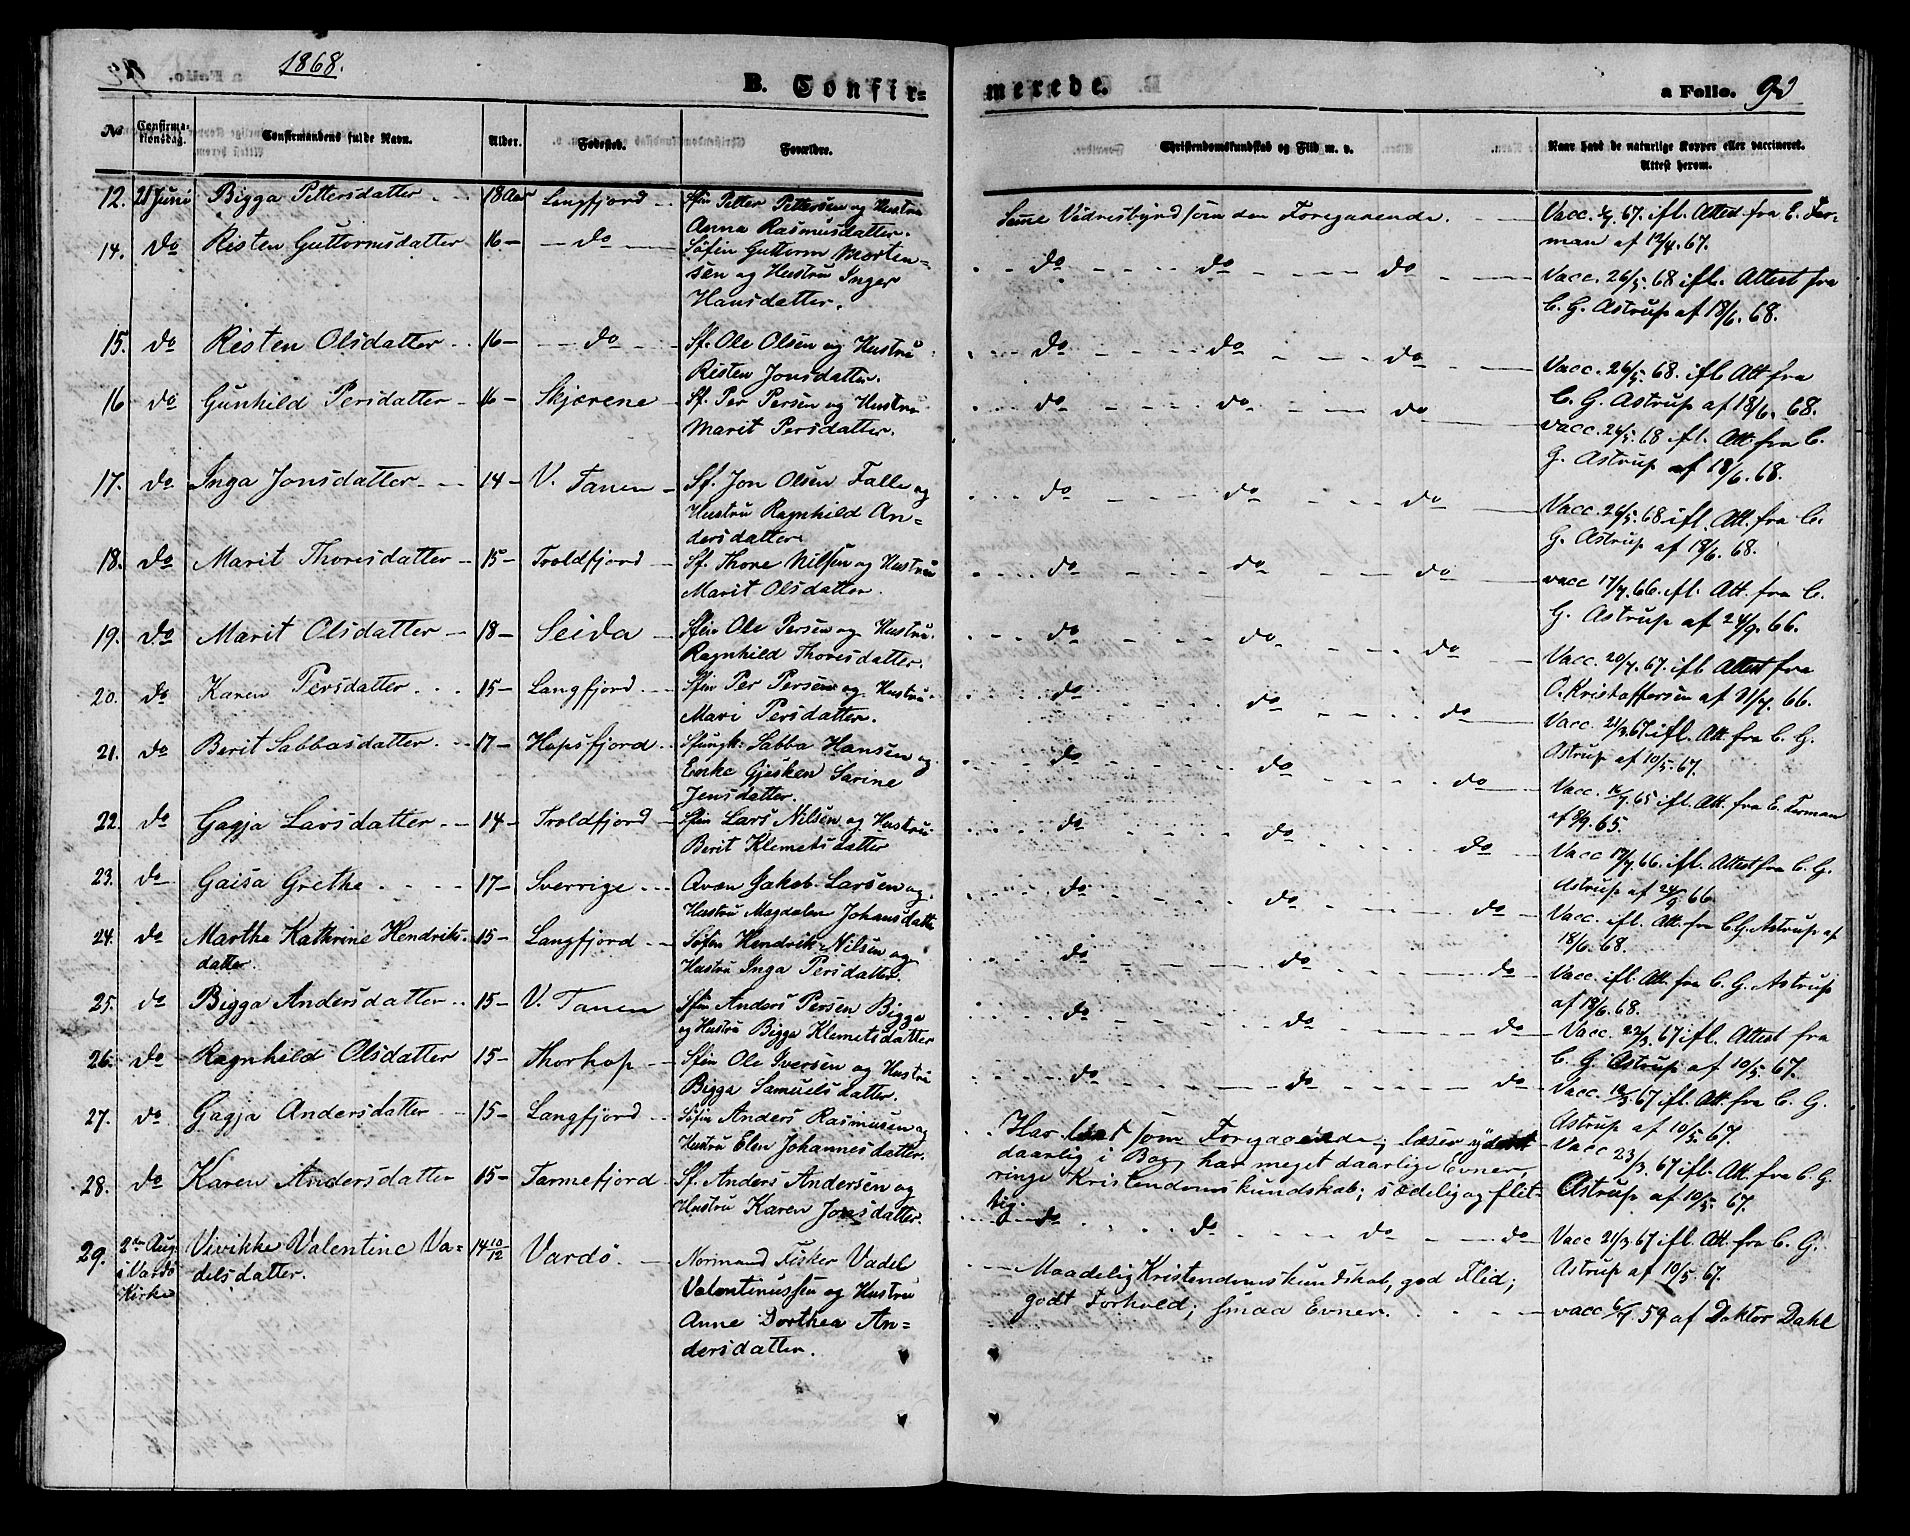 1868.
B. Confir=
merede.
a Folio. 93
No
Confirma-
tionsdag.
Confirmandens fulde Navn.
Alder.
Fødested.
Forældre.
Christendomskundskab og Flid m. v.
Naar havt de naturlige Kopper eller vaccineret.
Attest herom.
12. 21 Juni Bigga Pettersdatter 18 Aar Langfjord Sfin Petter Pettersen og Hustru
Anna Rasmusdatter.
Samme Vidnesbyrd som den Foregaaende. Vacc. 67. ifl. Attest fra E. For-
man af 12/4. 67.
14. do Risten Guttormsdatter 16 do Søfin Guttorm Morten-
sen og Hustru Inger
Hansdatter.
do do do Vacc. 26/5. 68 ifl. Attest fra
C. G. Astrup af 18/6. 68.
15. do Risten Olsdatter 16 do Sf. Ole Olsen og Hustru
Risten Jonsdatter.
do do do Vacc. 26/5. 68. ifl Att fra
C. G. Astrup af 18/6. 68.
16 do Gunhild Persdatter 16 Skjærene Sf. Per Persen og Hustru
Marit Persdatter.
do do do vacc. 26/5. 68 ifl. Att. fra C.
G. Astrup af 18/6. 68.
17. do Inga Jonsdatter 14 V. Tanen Sf. Jon Olsen Falle og
Hustru Ragnhild An=
dersdatter
do do do Vacc. 26/5. 68 ifl. Att. fra C.
G. Astrup af 18/6. 68.
18. do Marit Thoresdatter 15 Troldfjord Sf. Thore Nilsen og Hustru
Marit Olsdatter.
do do do vacc 17/7. 66. ifl. Att. fra C.
G. Astrup af 24/9. 66.
19. do Marit Olsdatter 18 Seida Sfin Ole Persen og Hustru
Ragnhild Thoresdatter.
do do do Vacc. 20/7. 67. ifl Attest fra
O. Kristoffersen af 21/7. 66.
20. do Karen Persdatter 15 Langfjord Sfin Per Persen og Hustru
Mari Persdatter.
do do do Vacc. 21/3. 67 ifl. Att. fra C. G.
Astrup af 10/5. 67.
21. do Berit Sabbasdatter 17 Hopsfjord Sfungk: Sabba Hansen og
Enke Gjesken Sarine
Jensdatter.
do do do Vacc. 16/7. 65 ifl. Att. fra E. Forman
af 8/9. 65.
22. do Gagja Larsdatter 14 Troldfjord Sfin Lars Nilsen og Hustru
Berit Klemetsdatter
do do do Vacc 17/7. 66. ifl. Attest fra C. G.
Astrup af 24/9 66
23. do Gaisa Grethe 17 Sverrige Qvæn Jakob Larsen og
Hustru Magdalen Johansdatt
do do do Vacc. ifl. Att. fra C. G. Astrup af
18/6. 68.
24. do Marthe Kathrine Hendriks-
datter. 15 Langfjord Søfin Hendrik Nilsen og
Hustru Inga Persdatter.
do do do Vacc. ifl. Att. fra C. G. Astrup
af 18/6. 68.
25. do Bigga Andersdatter 15 V. Tanen Sfin Anders Persen Bigga
og Hustru Bigga Klemetsdatter
do do do Vacc. 22/3. 67 ifl. Attest fra
C. G. Astrup af 10/5. 67.
26. do Ragnhild Olsdatter 15 Thorhop Sfin Ole Iversen og Hustru
Bigga Samuelsdatter.
do do do Vacc. 67 ifl. Att. fra C. G.
Astrup af 10/5. 67.
27. do Gagja Andersdatter 15 Langfjord Søfin Anders Rasmusen og
Hustru Elen Johannesdatter.
Har læst som Foregaaende; læser yderst
daarlig i Bog, har meget daarlige Evner,
ringe Kristendomskundskab; sædelig og flit-
tig.
Vacc 23/3. 67 ifl. Att. fra C. G.
Astrup af 10/5. 67.
28. do Karen Andersdatter 15 Tarmefjord Sf. Anders Andersen og
Hustru Karen Jonsdatter.
do do do do Vacc 21/3 67 ifl. Att. fra C. G.
Astrup af 10/5 67.
29. 2den Aug.
i Vardø
Kirke Vivikke Valentine Va=
delsdatter. 14 10/12 Vardö. Normand Fisker Vadel
Valentinussen og Hustru
Anne Dorthea An=
dersdatter.
Maadelig Kristendomskundskab, god Flid;
godt Forhold; smaa Evner.
vacc 6/7. 59 af Doktor Dahl